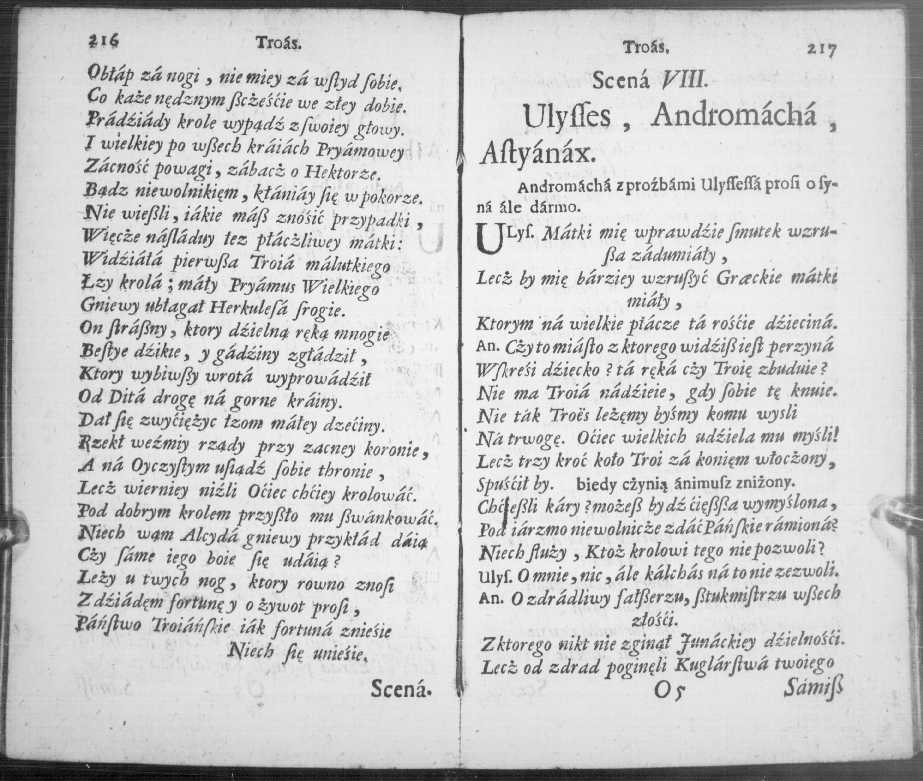 216
Troás.
Obłáp zá nogi, nie miey zá wſtyd ſobie,
Co każe nędznym ßcżeśćie we złey dobie.
Prádźiády krole wypądź z ſwoiey głowy.
I wielkiey po wßech kráiách Pryámowey
Zácność powagi, zábacż o Hektorze.
Bądz niewolnikięm, kłániáy ſię w pokorze.
Nie wießli, iákie máß znośić przypadki,
Więcże náſláduy łez płácżliwey mátki:
Widźiáłá pierwßa Troiá málutkiego
Łzy krolá; máły Pryámus Wielkiego
Gniewy ubłagał Herkuleſá ſrogie.
On ſtráßny, ktory dźielną ręką mnogie
Beſtye dźikie, y gádźiny zgłádził,
Ktory wybiwßy wrotá wyprowádźił
Od Ditá drogę ná gorne kráiny.
Dał ſię zwyćiężyc łzom máłey dzećiny.
Rzekł weźmiy rządy przy zacney koronie,
A ná Oyczyſtym uſiądź ſobie thronie,
Lecż wierniey niźli Oćiec chćiey krolowáć.
Pod dobrym krolem przyßło mu ßwánkowáć.
Niech wąm Alcydá gniewy przykłád dáią
Cży ſáme iego boie ſię udáią?
Leży u twych nog, ktory rowno znoſi
Z dźiádęm fortunę y o żywot proſi,
Páńſtwo Troiáńſkie iák fortuná znieśie
Niech ſię unieśie.
Scená.
Troás.
217
Scená VIII.
Ulyſſes, Andromáchá,
Aſtyánáx.
Andromáchá z proźbámi Ulyſſeſſá proſi o ſy-
ná ále dármo.
ULyſ. Mátki mię wprawdźie ſmutek wzru-
ßa zádumiáły,
Lecż by mię bárziey wzrußyć Græckie mátki
miáły,
Ktorym ná wielkie płácze tá rośćie dźieciná.
An. Cży to miáſto z ktorego widźiß ieſt perzyná
Wſkreśi dźiecko? tá ręká cży Troię zbuduie?
Nie ma Troiá nádźieie, gdy ſobie tę knuie.
Nie ták Troës leżęmy byśmy komu wysli
Ná trwogę. Oćiec wielkich udźiela mu myśli!
Lecż trzy kroć koło Troi zá konięm włocżony,
Spuśćił by. biedy cżynią ánimuſz zniżony.
Chćießli káry? możeß bydź ćięßßa wymyślona,
Pod iárzmo niewolnicże zdáć Páńſkie rámioná?
Niech ſłuży, Ktoż krolowi tego nie pozwoli?
Ulyſ. O mnie, nic, ále kálchás ná to nie zezwoli.
An. O zdrádliwy fałßerzu, ßtukmiſtrzu wßech
złośći.
Z ktorego nikt nie zginął Junáckiey dźielnośći.
Lecż od zdrad poginęli Kuglárſtwá twoiego
O 5
Sámiß